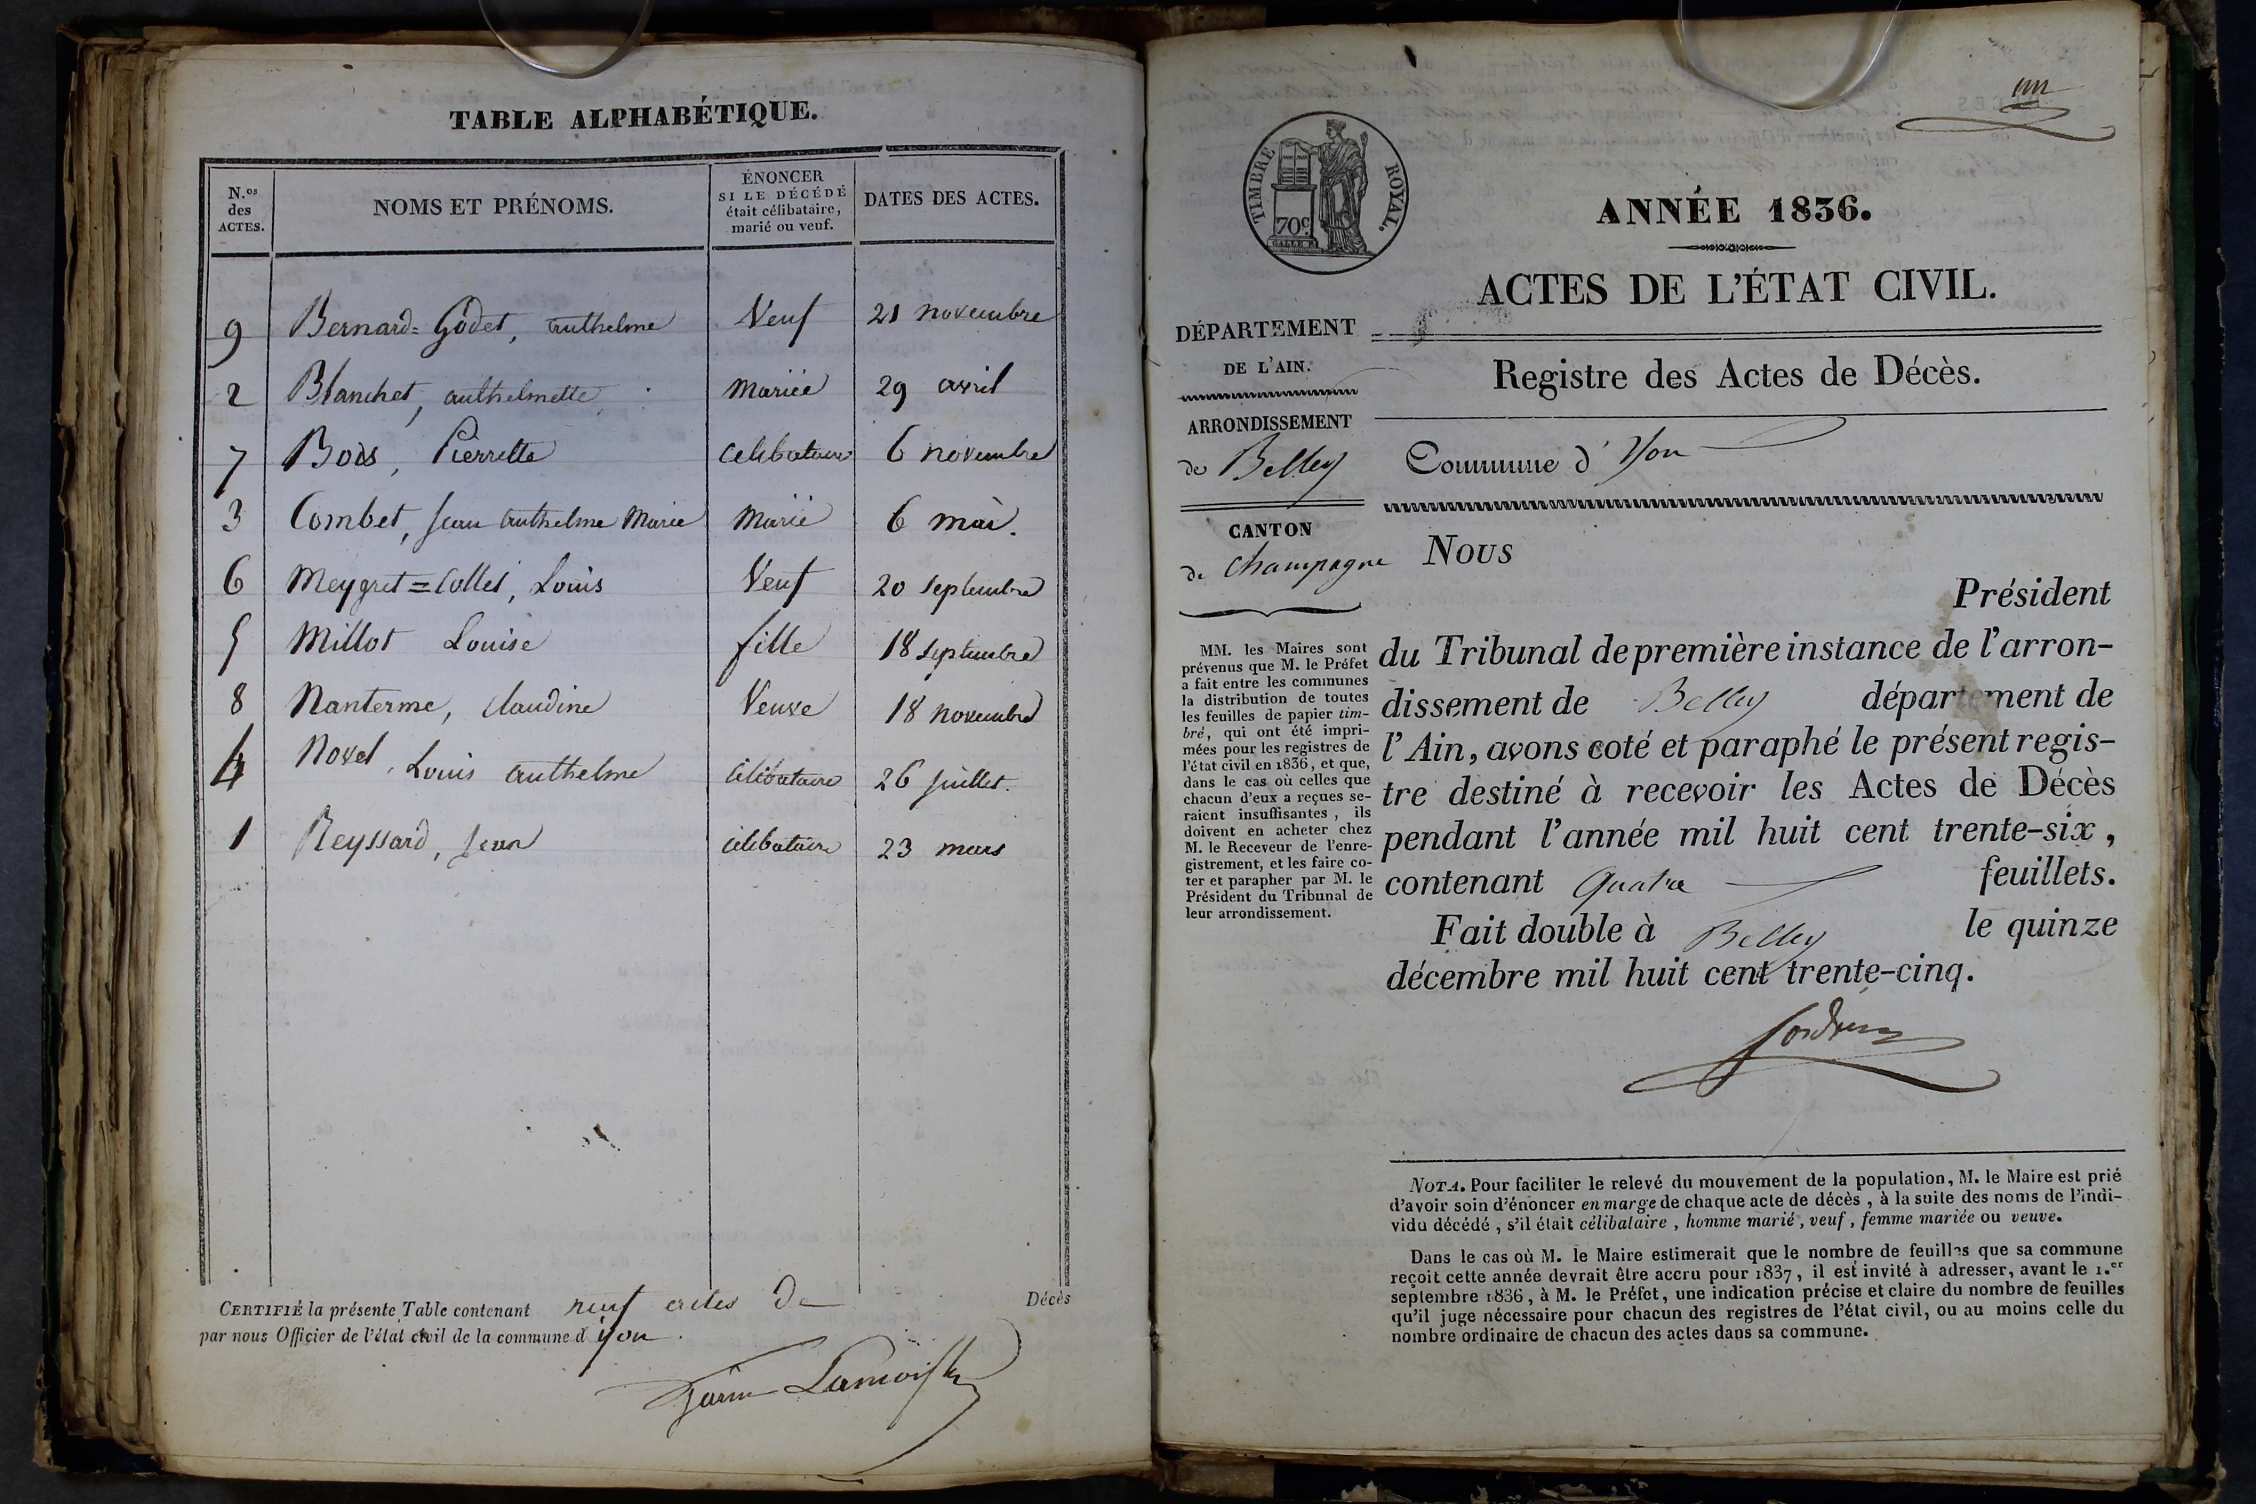 TABLE ALPHABÉTIQUE.
N.os des ACTES.
NOMS ET PRÉNOMS.
ÉNONCER
SI LE DÉCÉDÉ
était célibataire,
marié ou veuf.
DATES DES ACTES.
9 Bernard=Godet, anthelme Veuf 21 novembre
2 Blanchet, anthelmette Mariée 29 avril
7 Bois, Pierrette celibataire 6 novembre
3 Combet, Jean anthelme Marie Marié 6 mai.
6 Meygret=Collet, Louis Veuf 20 septembre
5 Millot Louise fille 18 septembre
8 Nanterme, Claudine Veuve 18 novembre
4 Novel, Louis anthelme célibataire 26 juillet.
1 Reyssard, Jean célibataire 23 mars
CERTIFIÉ la présente Table contenant neuf actes de Décès
par nous Officier de l'état civil de la commune d'yon.
un
TIMBRE ROYAL.
70c.
ANNÉE 1836.
ACTES DE L'ÉTAT CIVIL.
DÉPARTEMENT
DE L'AIN.
Registre des Actes de Décès.
ARRONDISSEMENT
de Belley
Commune d'Yon
CANTON
de Champagne
MM. les Maires sont
prévenus que M. le Préfet
a fait entre les communes
la distribution de toutes
les feuilles de papier tim-
bré, qui ont été impri-
mées pour les registres de
l'état civil en 1836, et que,
dans le cas où celles que
chacun d'eux a reçues se-
raient insuffisantes, ils
doivent en acheter chez
M. le Receveur de l'enre-
gistrement, et les faire co-
ter et parapher par M. le
Président du Tribunal de
leur arrondissement.
Nous
Président
du Tribunal de première instance de l'arron-
dissement de Belley département de
l'Ain, avons coté et paraphé le présent regis-
tre destiné à recevoir les Actes de Décès
pendant l'année mil huit cent trente-six,
contenant quatre feuillets.
Fait double à Belley le quinze
décembre mil huit cent trente-cinq.
NOTA. Pour faciliter le relevé du mouvement de la population, M. le Maire est prié
d'avoir soin d'énoncer en marge de chaque acte de décès, à la suite des noms de l'indi-
vidu décédé, s'il était célibataire, homme marié, veuf, femme mariée ou veuve.
Dans le cas où M. le Maire estimerait que le nombre de feuilles que sa commune
reçoit cette année devrait être accru pour 1837, il est invité à adresser, avant le 1.er
septembre 1836, à M. le Préfet, une indication précise et claire du nombre de feuilles
qu'il juge nécessaire pour chacun des registres de l'état civil, ou au moins celle du
nombre ordinaire de chacun des actes dans sa commune.